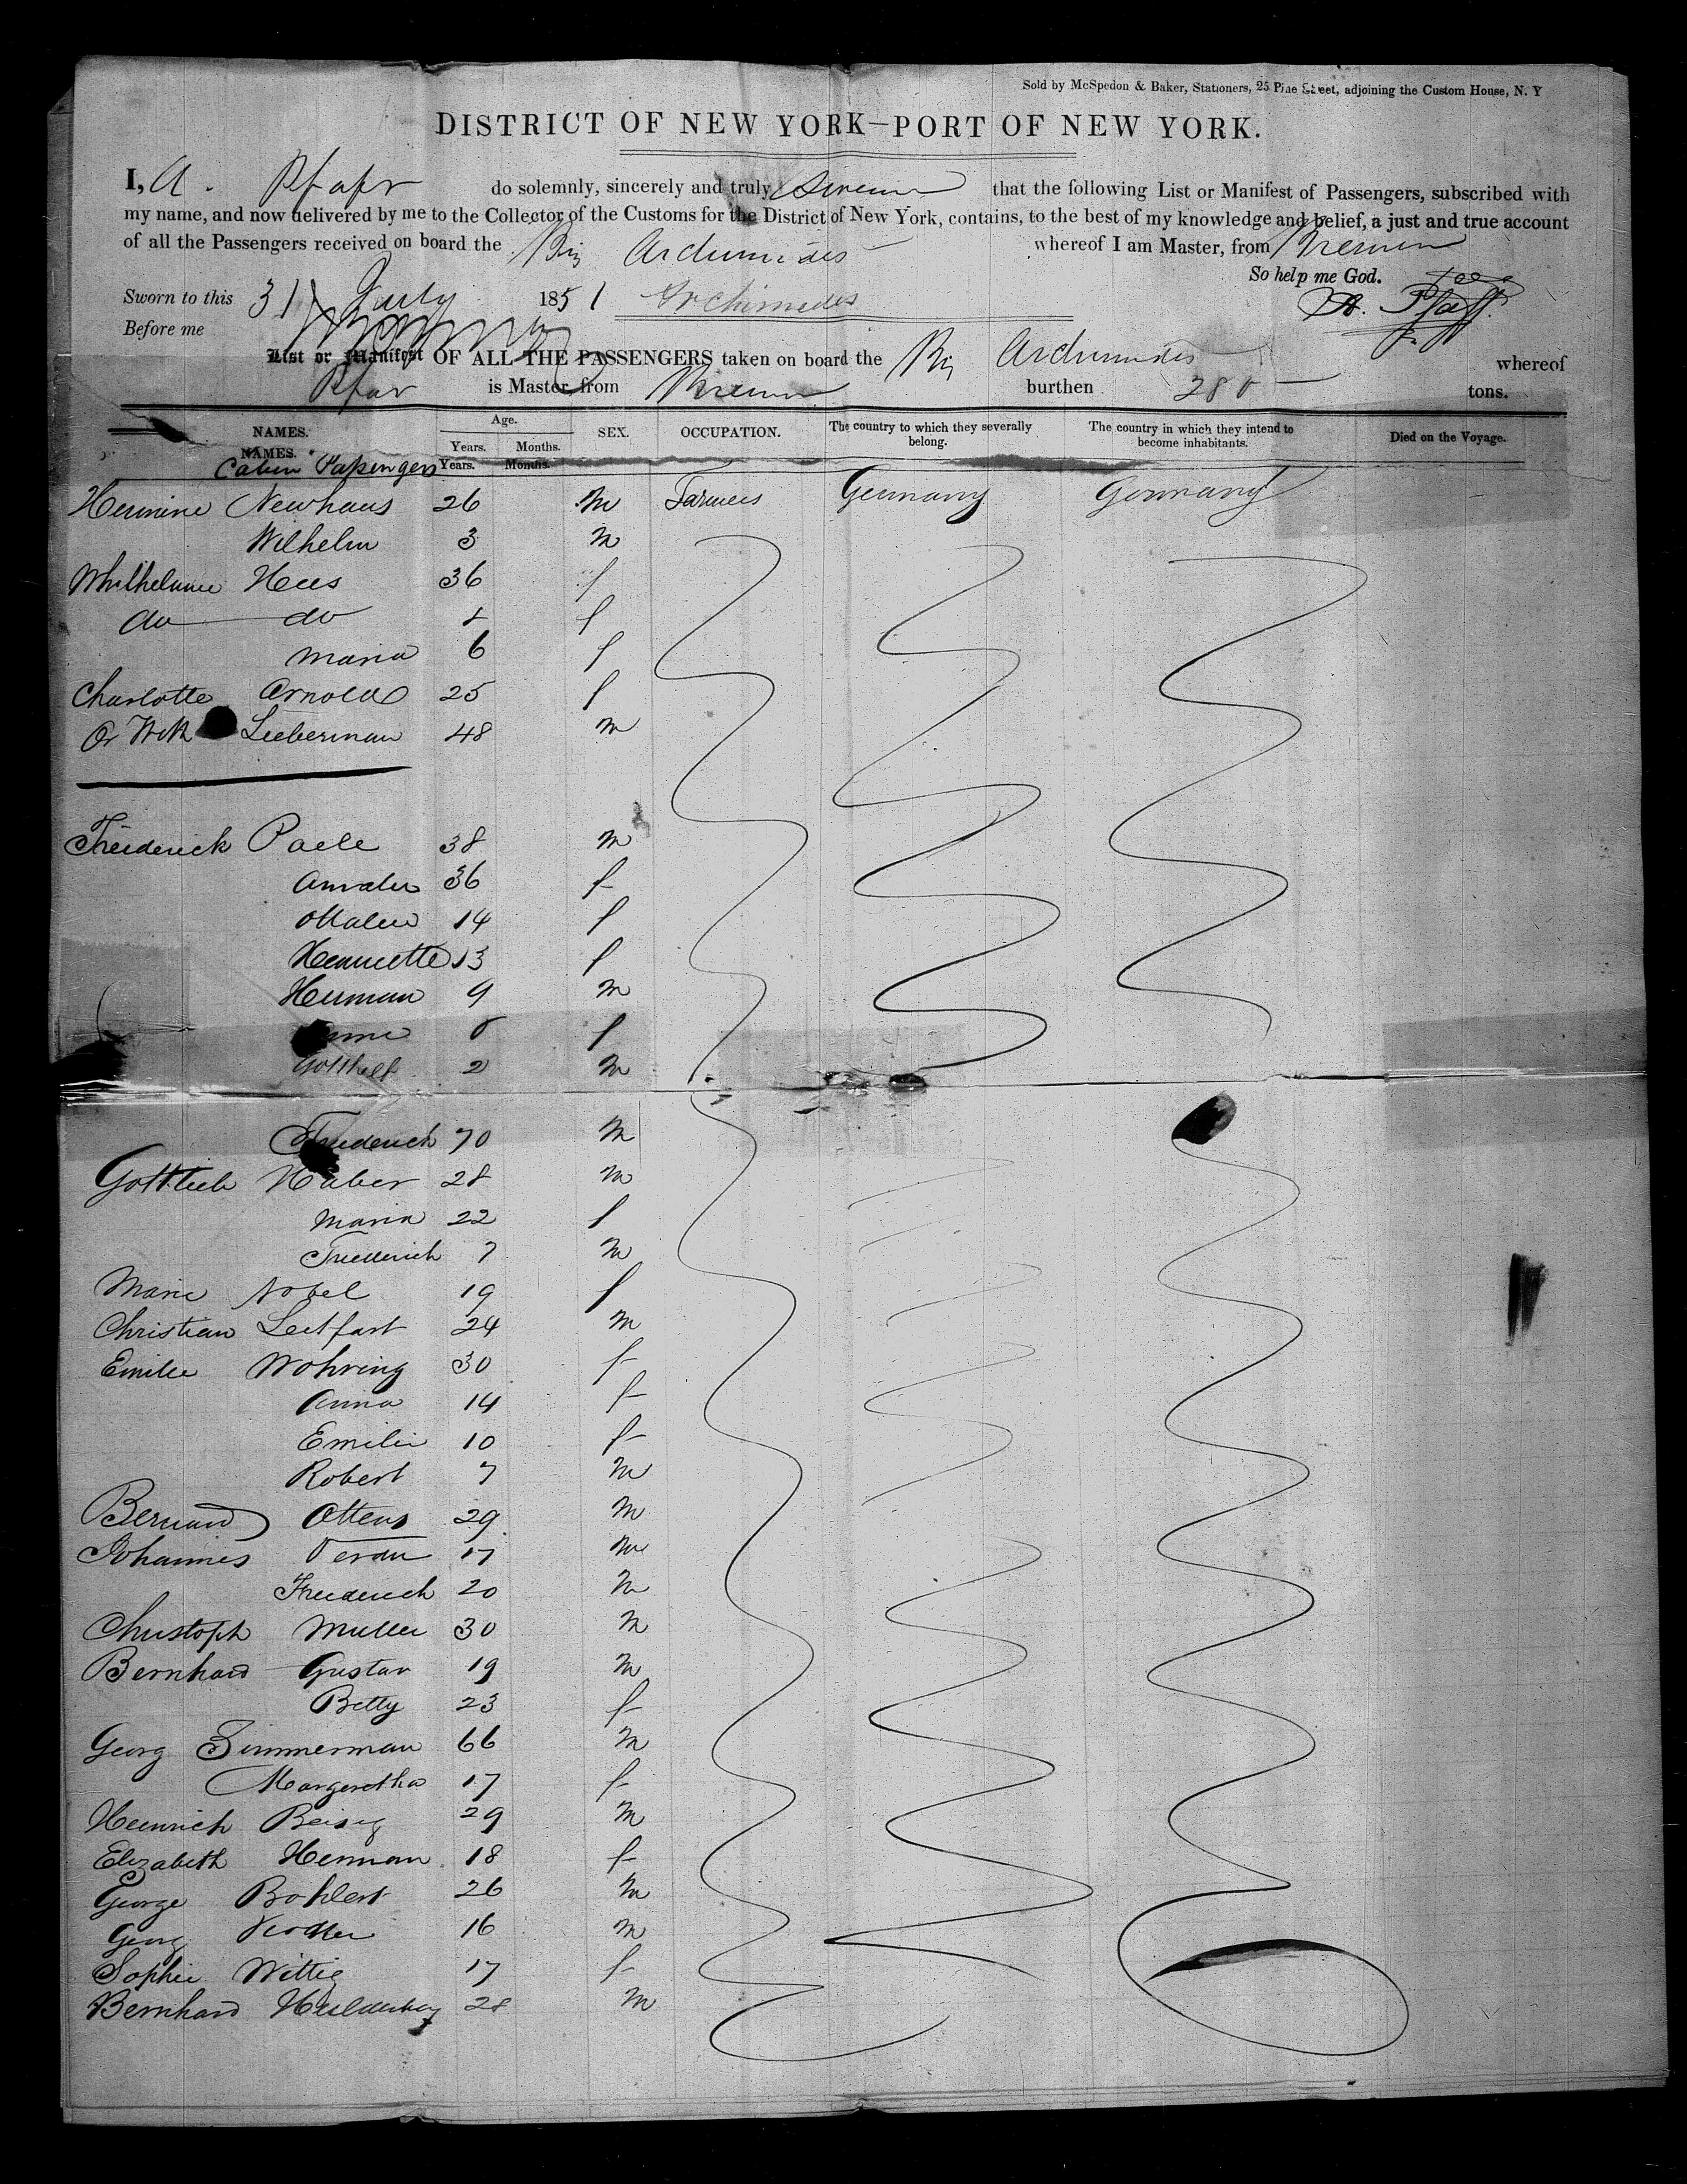 Sold by McSpedon & Baker, Stationers, 25 Pine Street, adjoining the Custom House, N. Y
DISTRICT OF NEW YORK—PORT OF NEW YORK.
I, A. Pfaff do solemnly, sincerely and truly swear that the following List or Manifest of Passengers, subscribed with
my name, and now delivered by me to the Collector of the Customs for the District of New York, contains, to the best of my knowledge and belief, a just and true account
of all the Passengers received on board the Brig Archimedes whereof I am Master, from Bremen
So help me God.
Sworn to this 31 July 1851 Archimedes A. Pfaff.
Before me
List or Manifest OF ALL THE PASSENGERS taken on board the Brig Archimedes whereof
Pfaff is Master, from Bremen burthen 280 tons.
NAMES. Age. SEX. OCCUPATION. The country to which they severally belong. The country in which they intend to become inhabitants. Died on the Voyage.
Years. Months.
NAMES. Years. Months.
Cabin Passengers
Hermine Newhaus 26 m Farmers Germany Germany
Wilhelm 3 m
Hees 36 f
do do f
Maria 6 f
Charlotte Arnold 25 f
Lieberman 48 m
Friederick Paele 38 m
36 f
14 f
13 f
Herman 9 m
f
Gotthelf 2 m
Friederich 70 m
Gottlieb Haber 28 m
Maria 22 f
Friederich 7 m
Marie Nobel 19 f
Christian Leitfart 24 m
Emilie Wohring 30 f
Anna 14 f
Emilie 10 f
Robert 7 m
Bernard Ottens 29 m
Johannes 17 m
Friederich 20 m
Christoph Muller 30 m
Bernhard Gustav 19 m
Betty 23 f
Georg Zimmerman 66 m
Margeretha 17 f
Heinrich Beisig 29 m
Elizabeth Herman 18 f
George Bohlert 26 m
Georg 16 m
Sophie Wittig 17 f
Bernhard 28 m